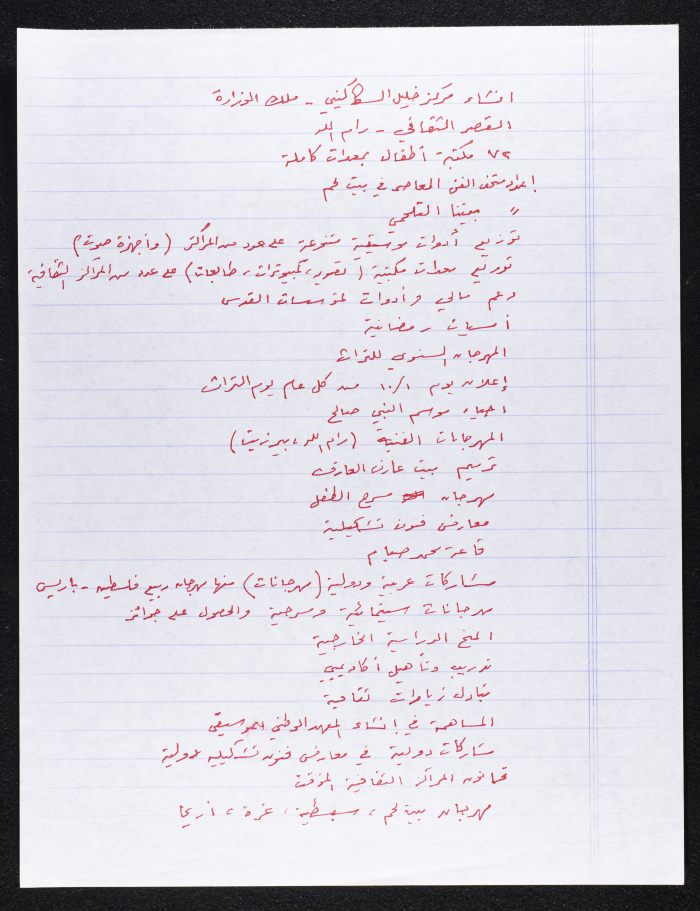 انشاء مركز خليل السكاكيني - ملك الوزارة
القصر الثقافي - رام الله
٧٢ مكتبة أطفال بمعدات كاملة
إعداد متحف الفن المعاصر في بيت لحم
" بيتنا التلحمي
توزيع أدوات موسيقية متنوعة على عدد من المراكز (وأجهزة صوت)
توزيع معدات مكتبية (تصوير، كمبيوترات، طابعات) على عدد من المراكز الثقافية
دعم مالي وأدوات لمؤسسات القدس
أمسيات رمضانية
المهرجان السنوي للتراث
إعلان يوم ١٠/١ من كل عام يوم التراث
احياء موسم النبي صالح
المهرجانات الفنية (رام الله، بيرزيت)
ترميم بيت عارف العارف
مهرجان مسرح الطفل
معارض فنون تشكيلية
قاعة محمد صيام
مشاركات عربية ودولية (مهرجانات) منها مهرجان ربيع فلسطين - باريس
مهرجانات سينمائية ومسرحية والحصول على جوائز
المنح الدراسية الخارجية
تدريب وتأهيل أكاديمي
تبادل زيارات ثقافية
المساهمة في إنشاء المعهد الوطني للموسيقى
مشاركات دولية في معارض فنون تشكيلية دولية
قانون المراكز الثقافية المؤقت
مهرجان بيت لحم، سبسطية، غزة، اريحا